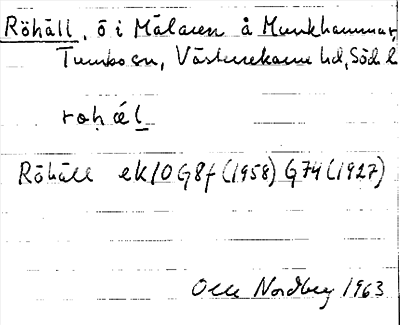 Röhäll, ö i Mälaren å Munkhammar,
Tumbo sn, Västerrekarne hd, Söd l
roḥäl
Röhäll ek10G8f(1958) G74(1927)
Olle Nordberg 1963